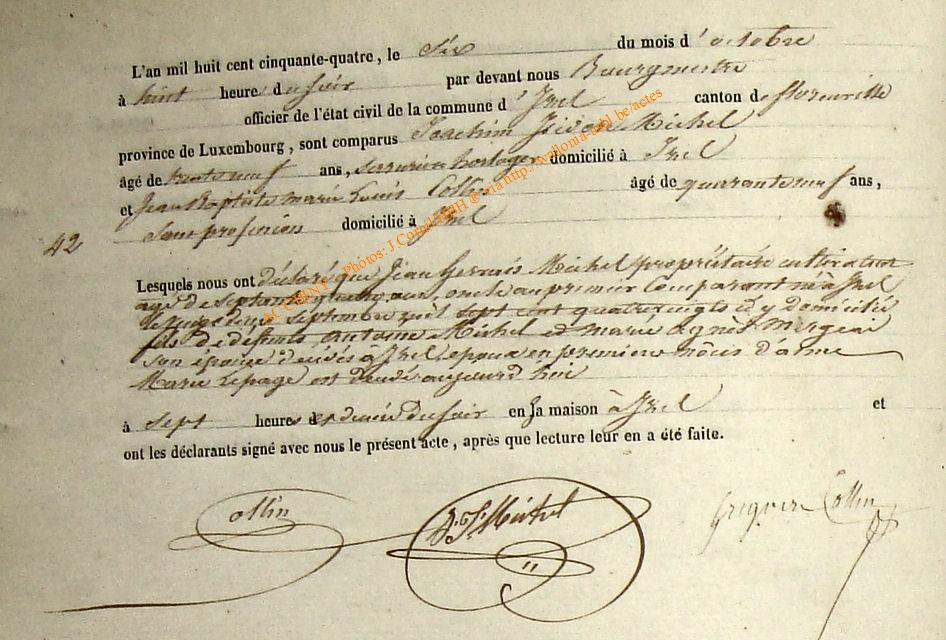 L'an mil huit cent cinquante-quatre, le Six du mois d' octobre
à huit heure du soir par devant nous Bourgmestre
officier de l'état civil de la commune d' Izel canton de florenville
province de Luxembourg, sont comparus Joachim Isidore Michel
âgé de trente neuf ans, serrurier horloger domicilié à Izel
et Jean Baptiste marie Louis Collin âgé de quarante neuf ans,
Sans profession domicilié à Izel
42
Lesquels nous ont déclaré que Jean Gervais Michel propriétaire cultivateur
agé de septante quatre ans, oncle au premier Comparant né à Izel
septembre mil sept cent quatre vingts et y domicilié
fils de défunts Antoine Michel et marie agnès
son épouse décédés à Izel, époux en premières nôces d'anne
Marie Lepage est décédé aujourd'hui
à sept heures et demie du soir en sa maison à Izel et
ont les déclarants signé avec nous le présent acte, après que lecture leur en a été faite.
Collin J. I. Michel Grégoire Collin
ACCOBINY - Photos: J Cornil via http://wallonia-asbl.be/actes